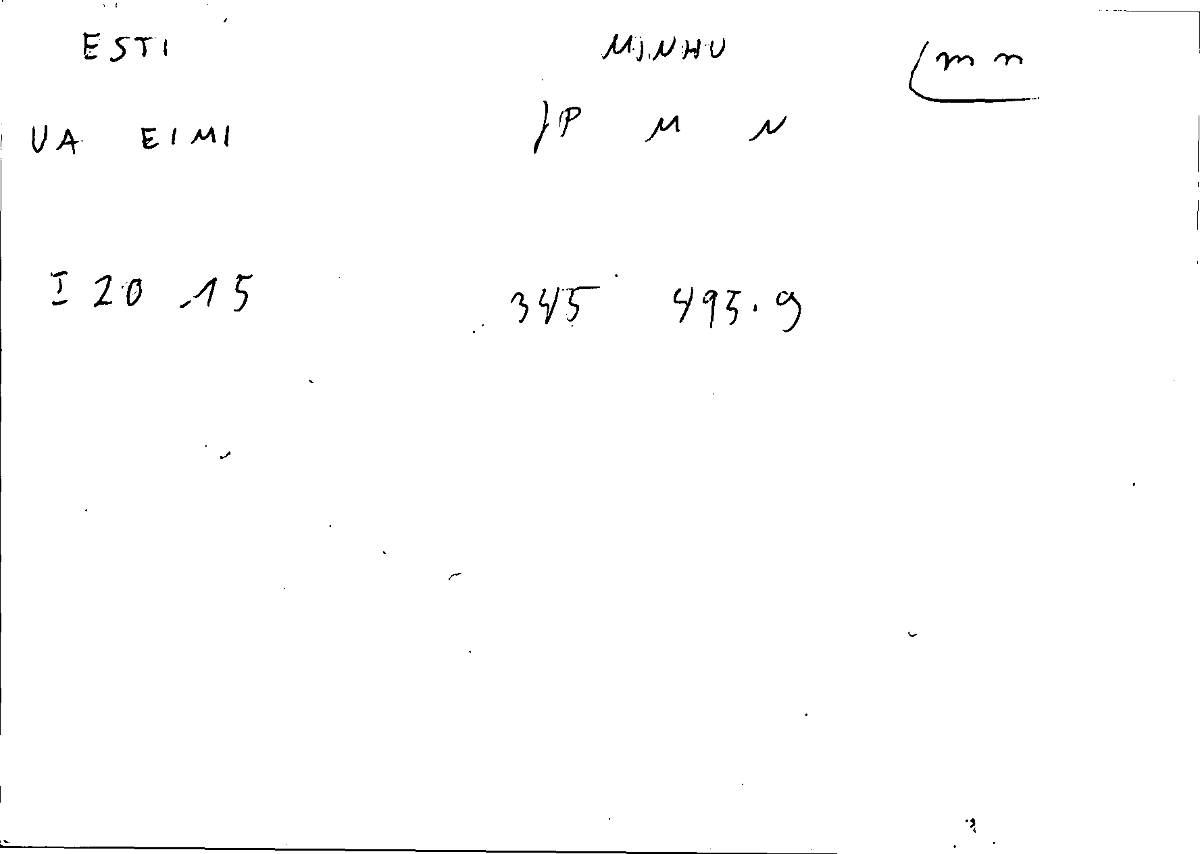 ESTI MINHU (m n
UA EIMI )P M N
I 20 .15 345 495.9